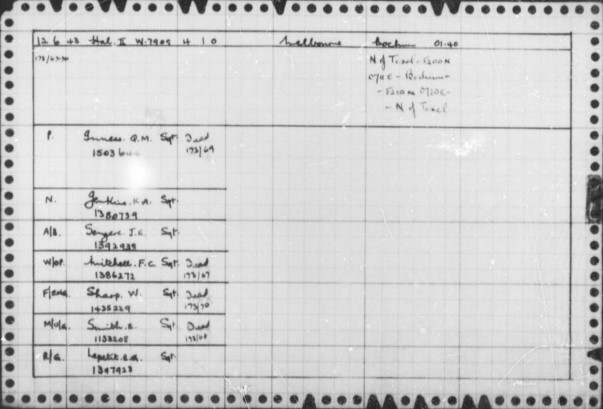 12 6 43 Hal. II W.7909 4 1 0 Melbourne Bochum 01.40
173/67-70
N of Texel - 5200N
0711E - Bochum -
- 5210N 0720E -
- N of Texel
P. Q.M. Sgt. Dead
15036 173/69
N. Jenkins. H.A. Sgt.
1380739
A/B. J.E. Sgt.
1392939
W/OP. Mitchell. F.C. Sgt. Dead
1386272 173/67
F/ENG. Sharp. W. Sgt. Dead
1435229 173/70
M/U/G. Smith. Sgt. Dead
1133208
R/G. Sgt.
1397923